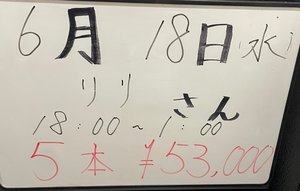 6月 18日(水)
リリ さん
18:00~1:00
5本 ¥53,000